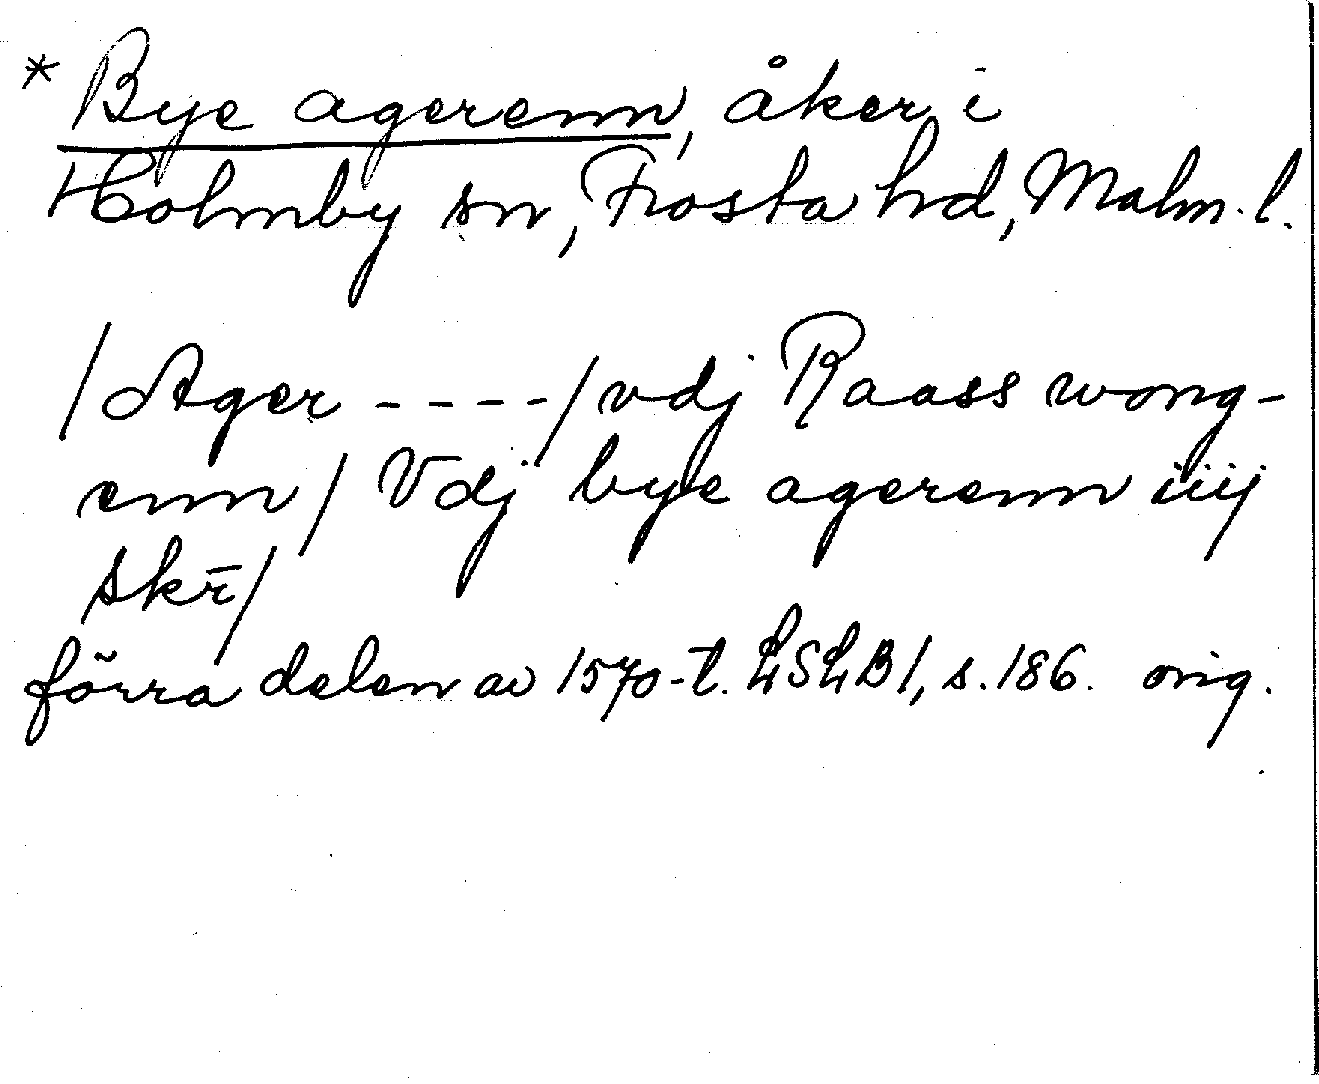 * Bye agerenn, åker i
Holmby sn, Frosta hd, Malm. l.
/Ager - - - -/ vdj Raass wong-
enn/ Vdj bye agerenn iiij
skr̄/
förra delen av 1570-t. LSLB1, s. 186. orig.